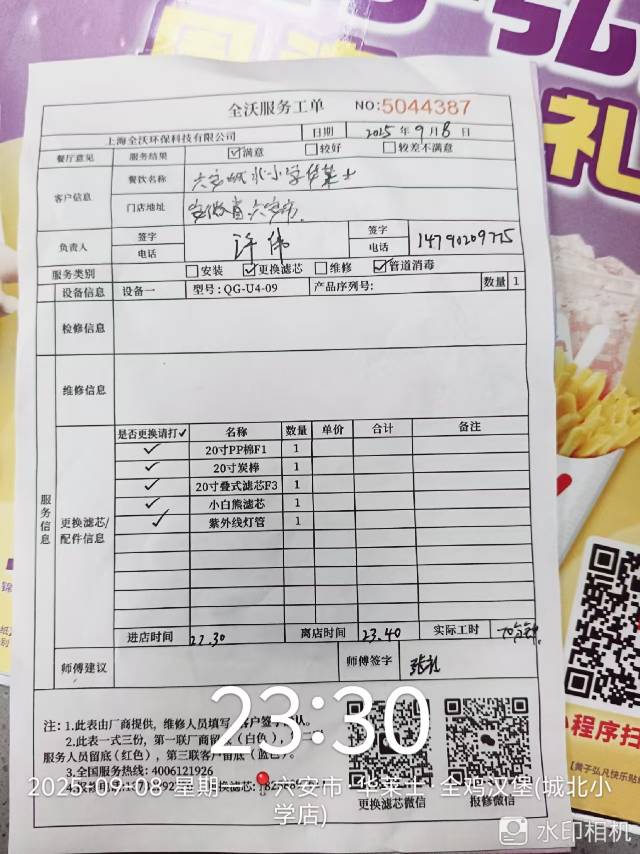 弘
礼
全沃服务工单 NO:5044387
上海全沃环保科技有限公司 日期 2025年9月8日
餐厅意见 服务结果 ☑满意 □较好 □较差不满意
客户信息 餐饮名称 六安城北小学华莱士
门店地址 安徽省六安市.
负责人 签字 电话 许伟 签字 电话 14790209775
服务类别 □安装 ☑更换滤芯 □维修 ☑管道消毒
设备信息 设备一 型号:QG-U4-09 产品序列号: 数量 1
检修信息
维修信息
服务信息
更换滤芯/配件信息
是否更换请打✓ 名称 数量 单价 合计 备注
✓ 20寸PP棉F1 1
✓ 20寸炭棒 1
✓ 20寸叠式滤芯F3 1
✓ 小白熊滤芯 1
✓ 紫外线灯管 1
进店时间 22.30 离店时间 23.40 实际工时 70分钟
师傅建议 师傅签字
23:30
注:1.此表由厂商提供,维修人员填写,客户签字确认。
2.此表一式三份,第一联厂商留底(白色),
服务人员留底(红色),第三联客户留底(蓝色)。
3.全国服务热线:4006121926
换滤芯:
更换滤芯微信 报修微信
2025-09-08 星期一 六安市·华莱士·全鸡汉堡(城北小学店)
小程序扫
【黄子弘凡快乐贴
水印相机